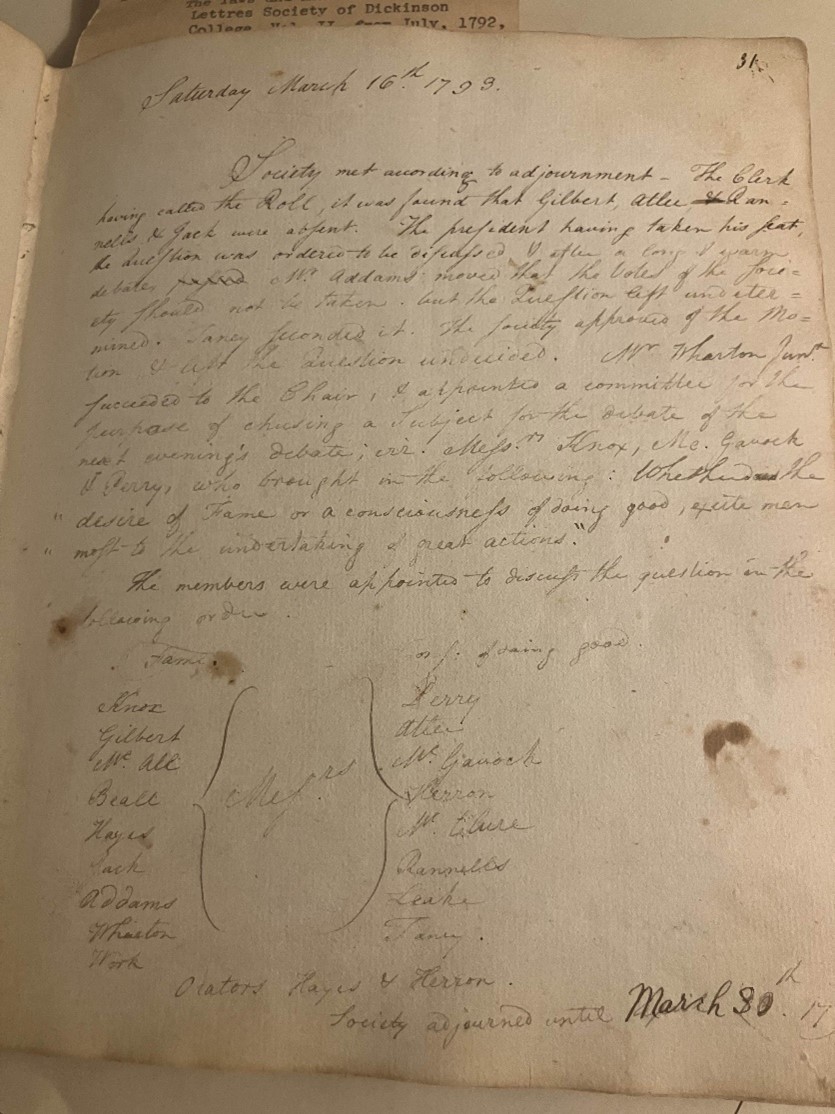 Lettres Society of Dickinson
College, Vol. II from July, 1792,
31
Saturday March 16th. 1793.
Society met according to adjournment – The Clerk
having called the Roll, it was found that Gilbert, Atlee & Ran=
nells & Jack were absent. The president having taken his seat,
the Question was ordered to be discussed & after a long & warm
debates Mr. Addams moved that the Votes of the Soci=
ety should not be taken. but the Question left undeter=
mined. Taney seconded it. The society approved of the Mo=
tion & left the Question undecided. Mr Wharton Junr.
succeeded to the Chair, & appointed a committee for the
purpose of chusing a Subject for the debate of the
next evening's debate; viz. Messrs. Knox, Mc. Gavock
& Perry, who brought in the following: Whether the
" desire of Fame or a consciousness of doing good, excite men
" most to the undertaking of great actions."
The members were appointed to discuss the question in the
following order.
Fame.
of doing good.
Knox
Gilbert
Mc. All
Beall
Hayes
Jack
Addams
Wharton
Work
Messrs.
Perry
Atlee
Mc. Gavock
Herron
Mc. Clure
Rannells
Leake
Taney.
Orators Hayes & Herron.
Society adjourned until March 30th. 17